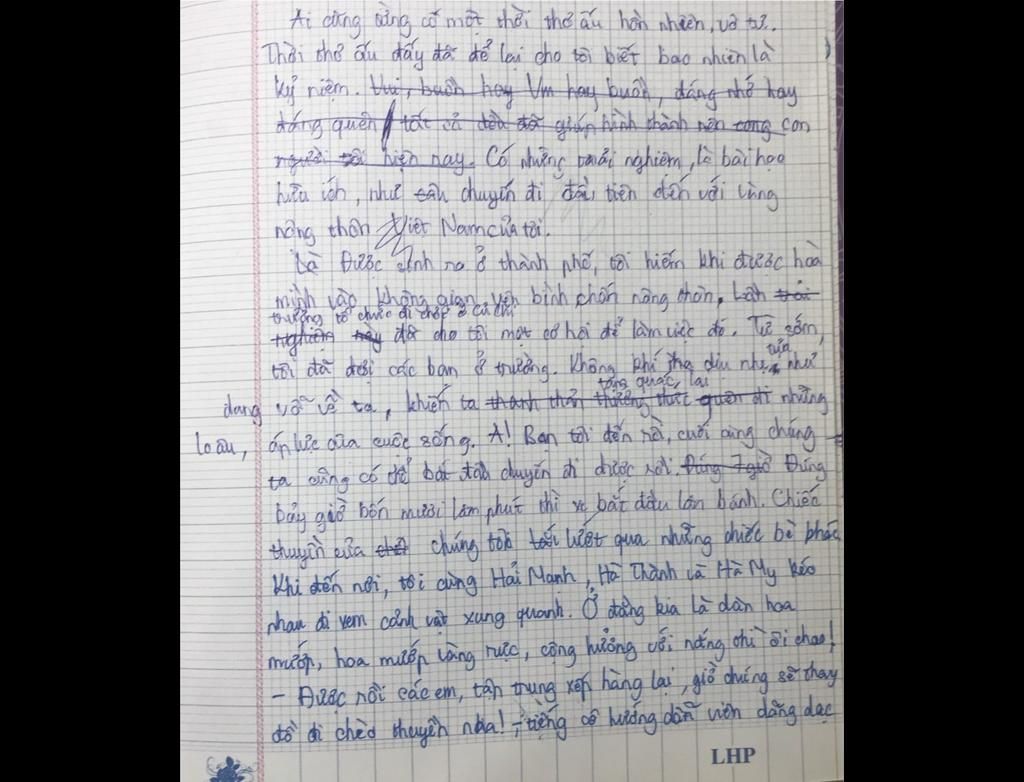 Ai cũng từng có một thời thơ ấu hồn nhiên, vô tư.
Thời thơ ấu đấy đã để lại cho tôi biết bao nhiêu là
kỷ niệm. Vui, buồn hay Vui hay buồn, đáng nhớ hay
đáng quên tất cả đều đã giúp hình thành nên con
người tôi hiện nay. Có những trải nghiệm, là bài học
hữu ích, như chuyến đi đầu tiên đến với vùng
nông thôn Việt Nam của tôi.
Là Được sinh ra ở thành phố, tôi hiếm khi được hoà
mình vào không gian yên bình chốn nông thôn. Lần trải
trường tổ chức đi
nghiệm này đã cho tôi một cơ hội để làm việc đó. Từ sớm,
tôi đã đợi các bạn ở trường. Không khí dịu nhẹ tựa như
đang vỗ về ta, khiến ta quên đi những
lo âu, áp lực của cuộc sống. A! Bạn tôi đến rồi, cuối cùng chúng
ta cũng có thể bắt đầu chuyến đi được rồi. Đúng 7 giờ Đúng
bảy giờ bốn mươi lăm phút thì xe bắt đầu lăn bánh. Chiếc
thuyền của chúng tôi lướt qua những chiếc bè khác
Khi đến nơi, tôi cùng Hải Mạnh, Hà Thành và Hà My kéo
nhau đi xem cảnh vật xung quanh. Ở đằng kia là dàn hoa
mướp, hoa mướp vàng rực, cộng hưởng với nắng thì ôi chao!
- Được rồi các em, tập trung xếp hàng lại, giờ chúng sẽ thay
đồ đi chèo thuyền nha! - tiếng cô hướng dẫn viên dõng dạc
LHP